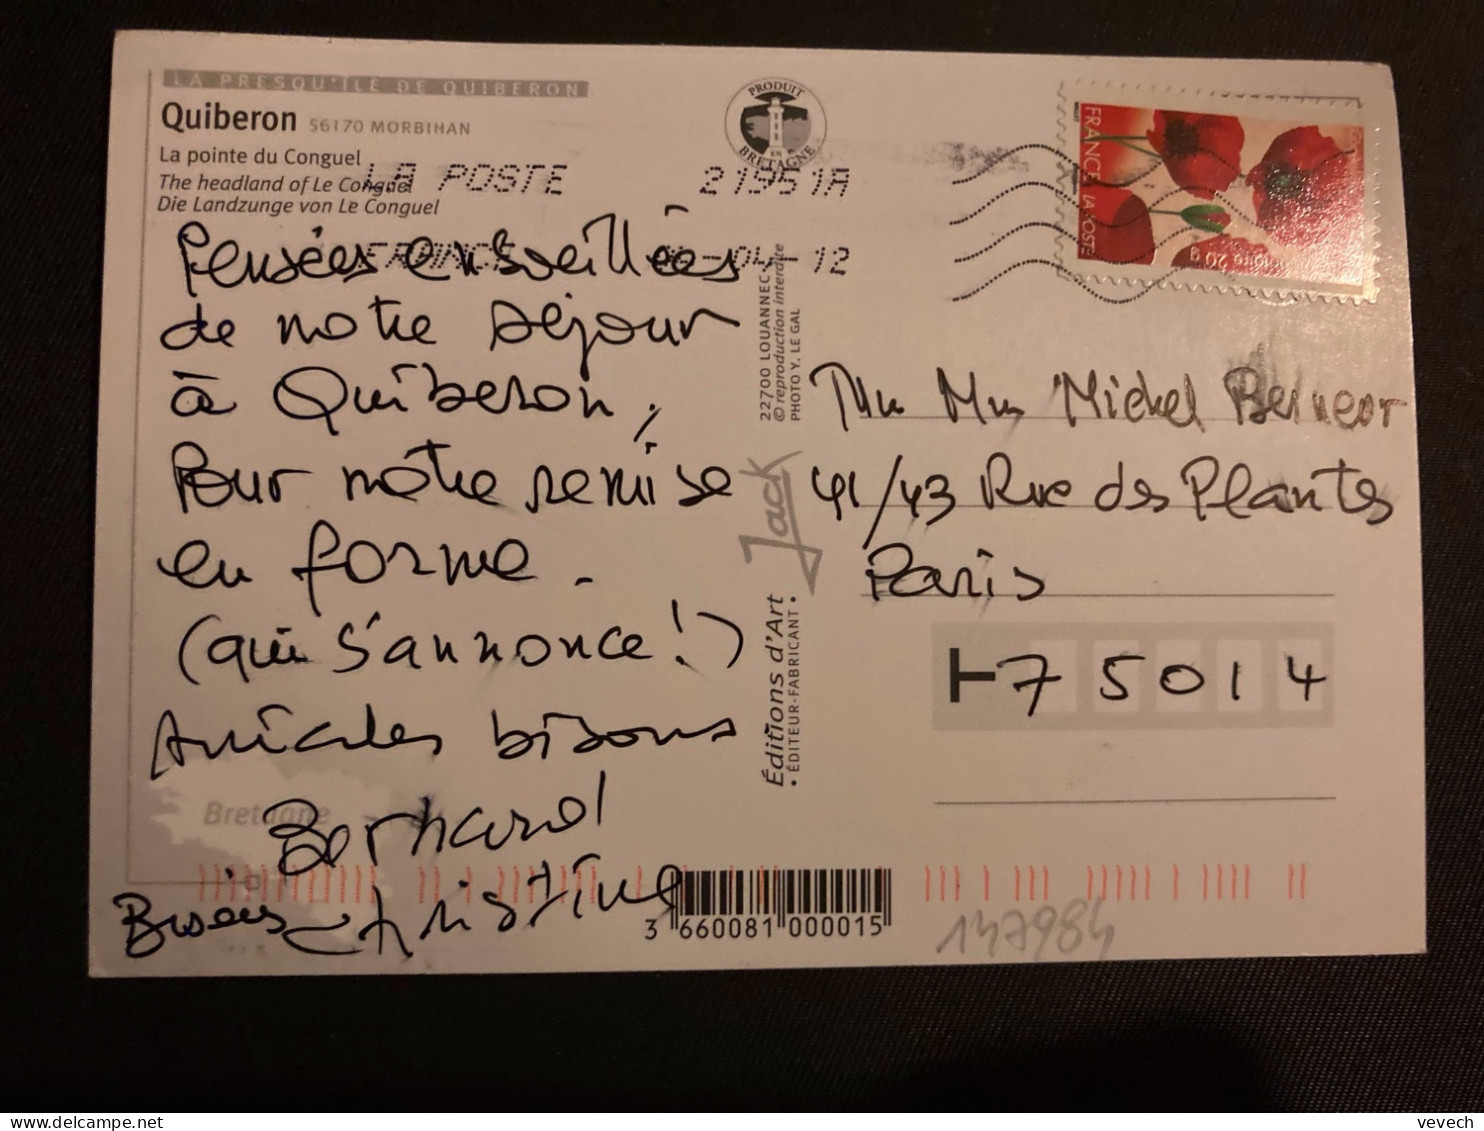 LA PRESQU'ÎLE DE QUIBERON
Quiberon 56170 MORBIHAN
La pointe du Conguel
The headland of Le Conguel
Die Landzunge von Le Conguel
PRODUIT
EN
BRETAGNE
LA POSTE 21951A
FRANCE -04-12
FRANCE LA POSTE
20 g
Pensées ensoleillées
de notre séjour
à Quiberon,
Pour notre remise
en forme.
(qui s'annonce!)
Amicales bisous
Bernard
Bisées Christine
Bretagne
22700 LOUANNEC
© reproduction interdite
PHOTO Y. LE GAL
Jack
Éditions d'Art
• ÉDITEUR-FABRICANT •
Michel
41/43 Rue des Plantes
Paris
75014
3 660081 000015
147984
vevech